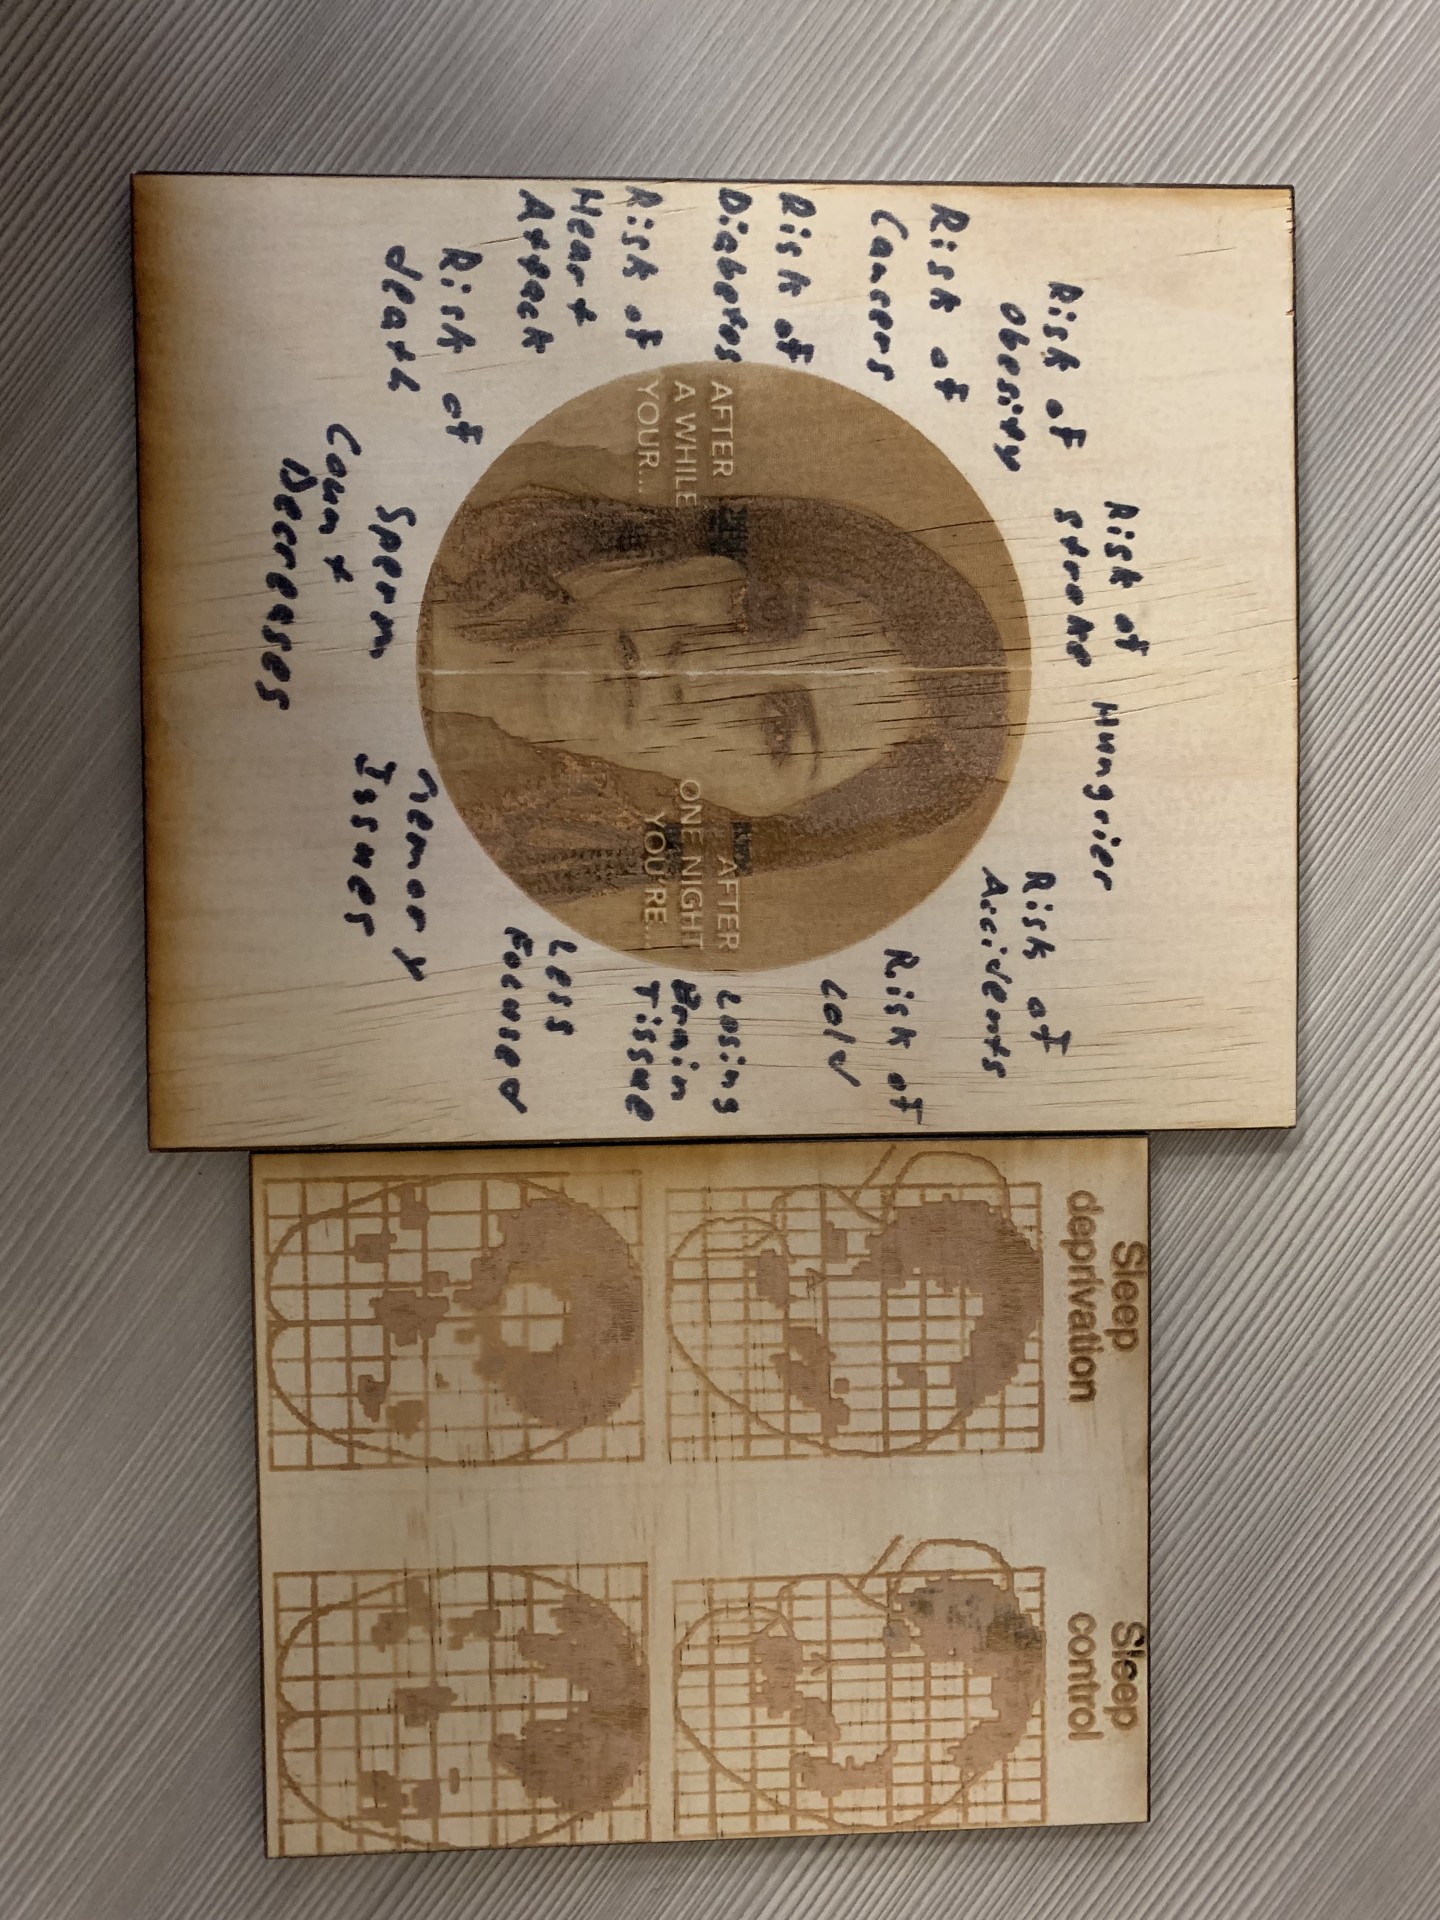 Risk of
stroke
Hungrier
Risk of
obesity
Risk of
Accidents
Risk of
Cansers
Risk of
cold
Risk of
Diabetes
AFTER
A WHILE
YOUR...
AFTER
ONE NIGHT
YOU'RE...
Losing
Brain
Tissue
Risk of
Heart
Attack
Less
Focused
Risk of
death
Sperm
Count
Decreases
memory
Issues
Sleep
deprivation
Sleep
control